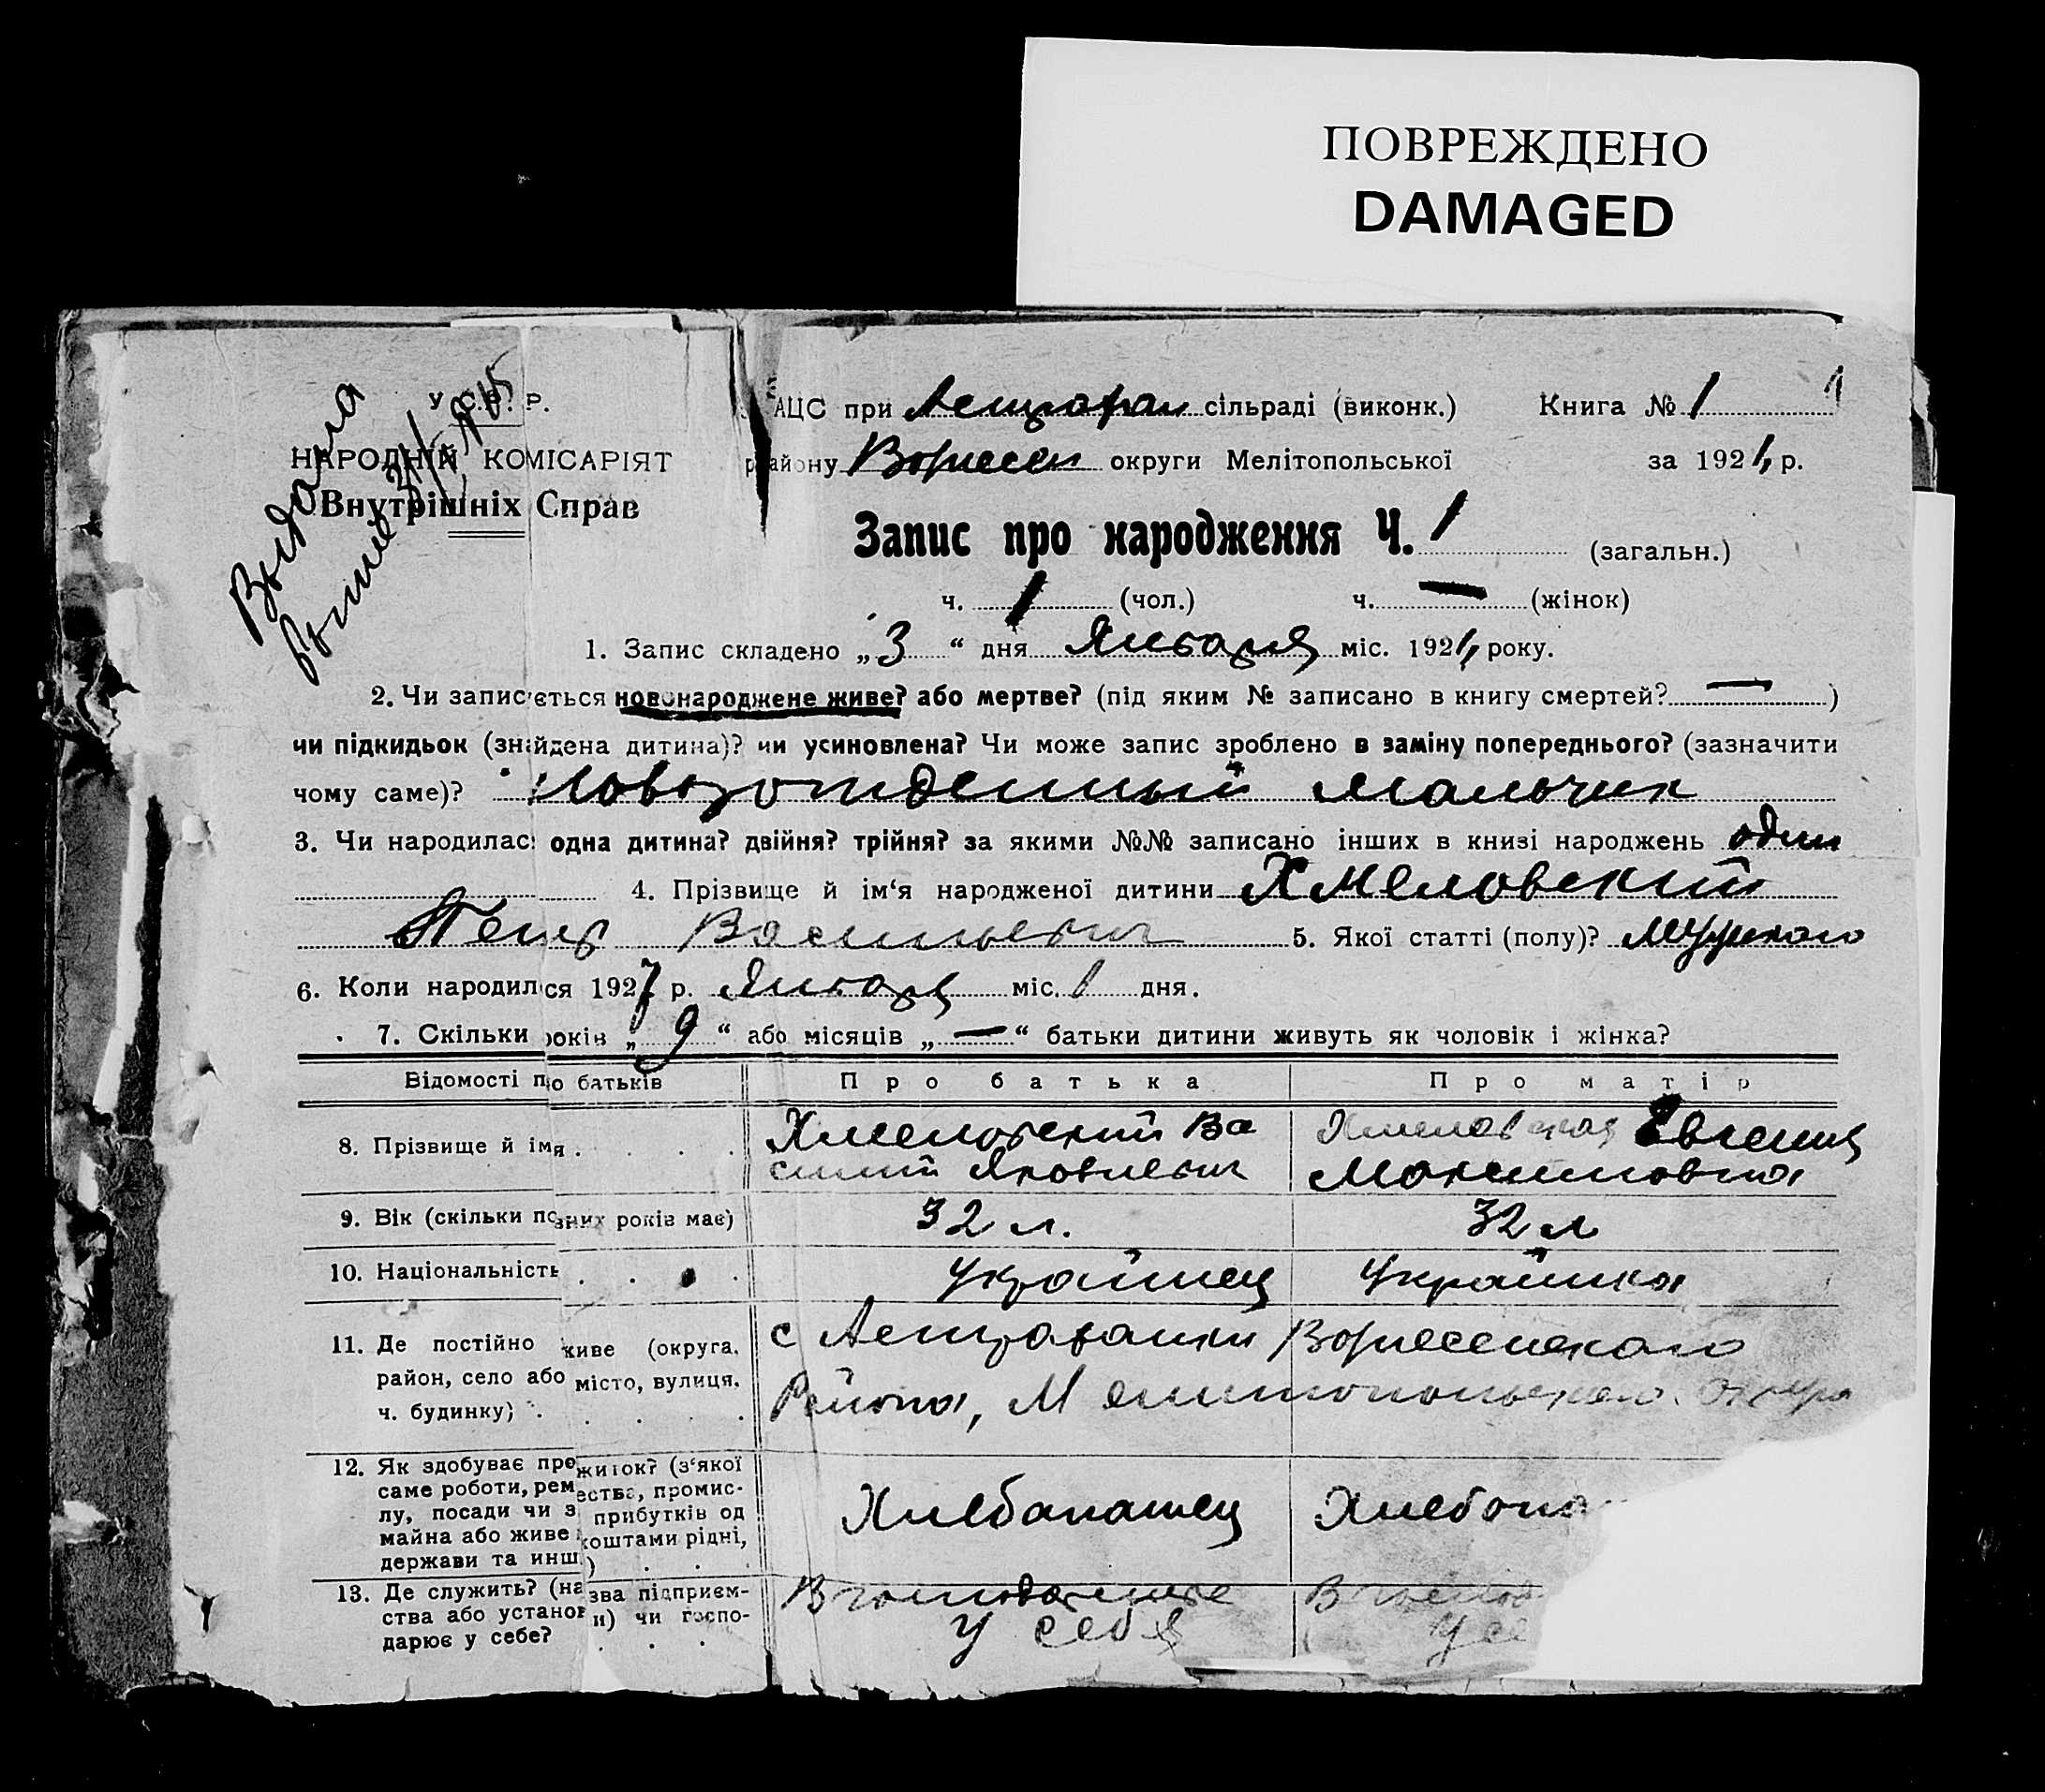 ПОВРЕЖДЕНО
DAMAGED
У.С.Р.Р.
НАРОДНІЙ КОМІСАРІЯТ
Внутрішніх Справ
Выдана
ЗАЦС при Астрахан сільраді (виконк.) Книга № 1 1
району округи Мелітопольської за 192 р.
Запис про народження Ч. 1 (загальн.)
ч. 1 (чол.) ч. — (жінок)
1. Запис складено „3“ дня Января міс. 192 року.
2. Чи записується новонароджене живе? або мертве? (під яким № записано в книгу смертей? — )
чи підкидьок (знайдена дитина)? чи усиновлена? Чи може запис зроблено в заміну попереднього? (зазначити
чому саме)? Новорожденный мальчик
3. Чи народилась одна дитина? двійня? трійня? за якими №№ записано інших в книзі народжень один
4. Прізвище й ім‘я народженої дитини Хмеловский
Петр Васильевич 5. Якої статті (полу)? мужского
6. Коли народился 1927 р. Января міс. 1 дня.
7. Скільки років „9“ або місяців „—“ батьки дитини живуть як чоловік і жінка?
Відомості про батьків Про батька Про матір
8. Прізвище й імя . . . . Хмеловский Ва Хмеловская Евгения
силий Яковлевич Максимовна
9. Вік (скільки повних років має) 32 л. 32 л
10. Національність . . . . Украинец Украинка
11. Де постійно живе (округа, с Астраханки
район, село або місто, вулиця, Района, Мелитопольского Округа
ч. будинку) . . . . .
12. Як здобуває прожиток? (з‘якої
саме роботи, ремества, промис-
лу, посади чи з прибутків од Хлебапашец Хлебопа
майна або живе коштами рідні,
держави та инш.) . . .
13. Де служить? (назва підприєм-
ства або установи) чи госпо- У себя У се
дарює у себе? . . .